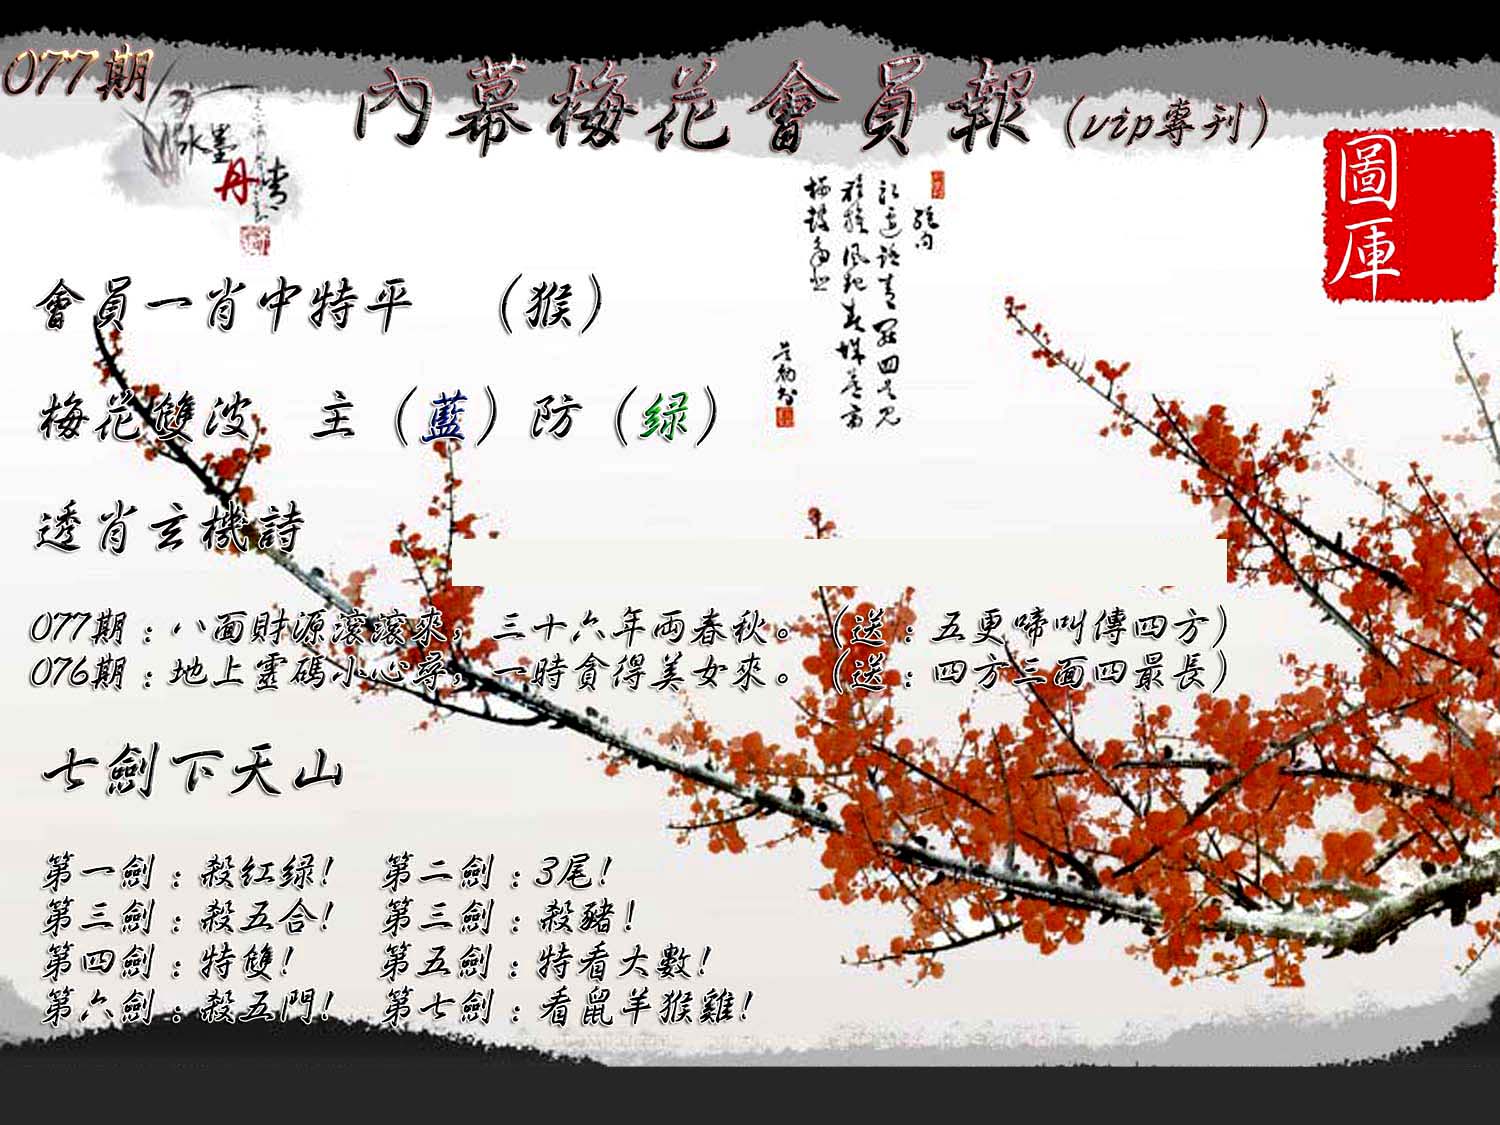 077期
內幕梅花會員報（vip專刊）
水墨
丹青
圖
庫
會員一肖中特平　（猴）
梅花雙波　主（藍）防（绿）
透肖玄機詩
077期：八面財源滾滾來，三十六年兩春秋。（送：五更啼叫傳四方）
076期：地上靈碼小心尋，一時貪得美女來。（送：四方三面四最長）
七劍下天山
第一劍：殺紅绿！　第二劍：3尾！
第三劍：殺五合！　第三劍：殺豬！
第四劍：特雙！　第五劍：特看大數！
第六劍：殺五門！　第七劍：看鼠羊猴雞！